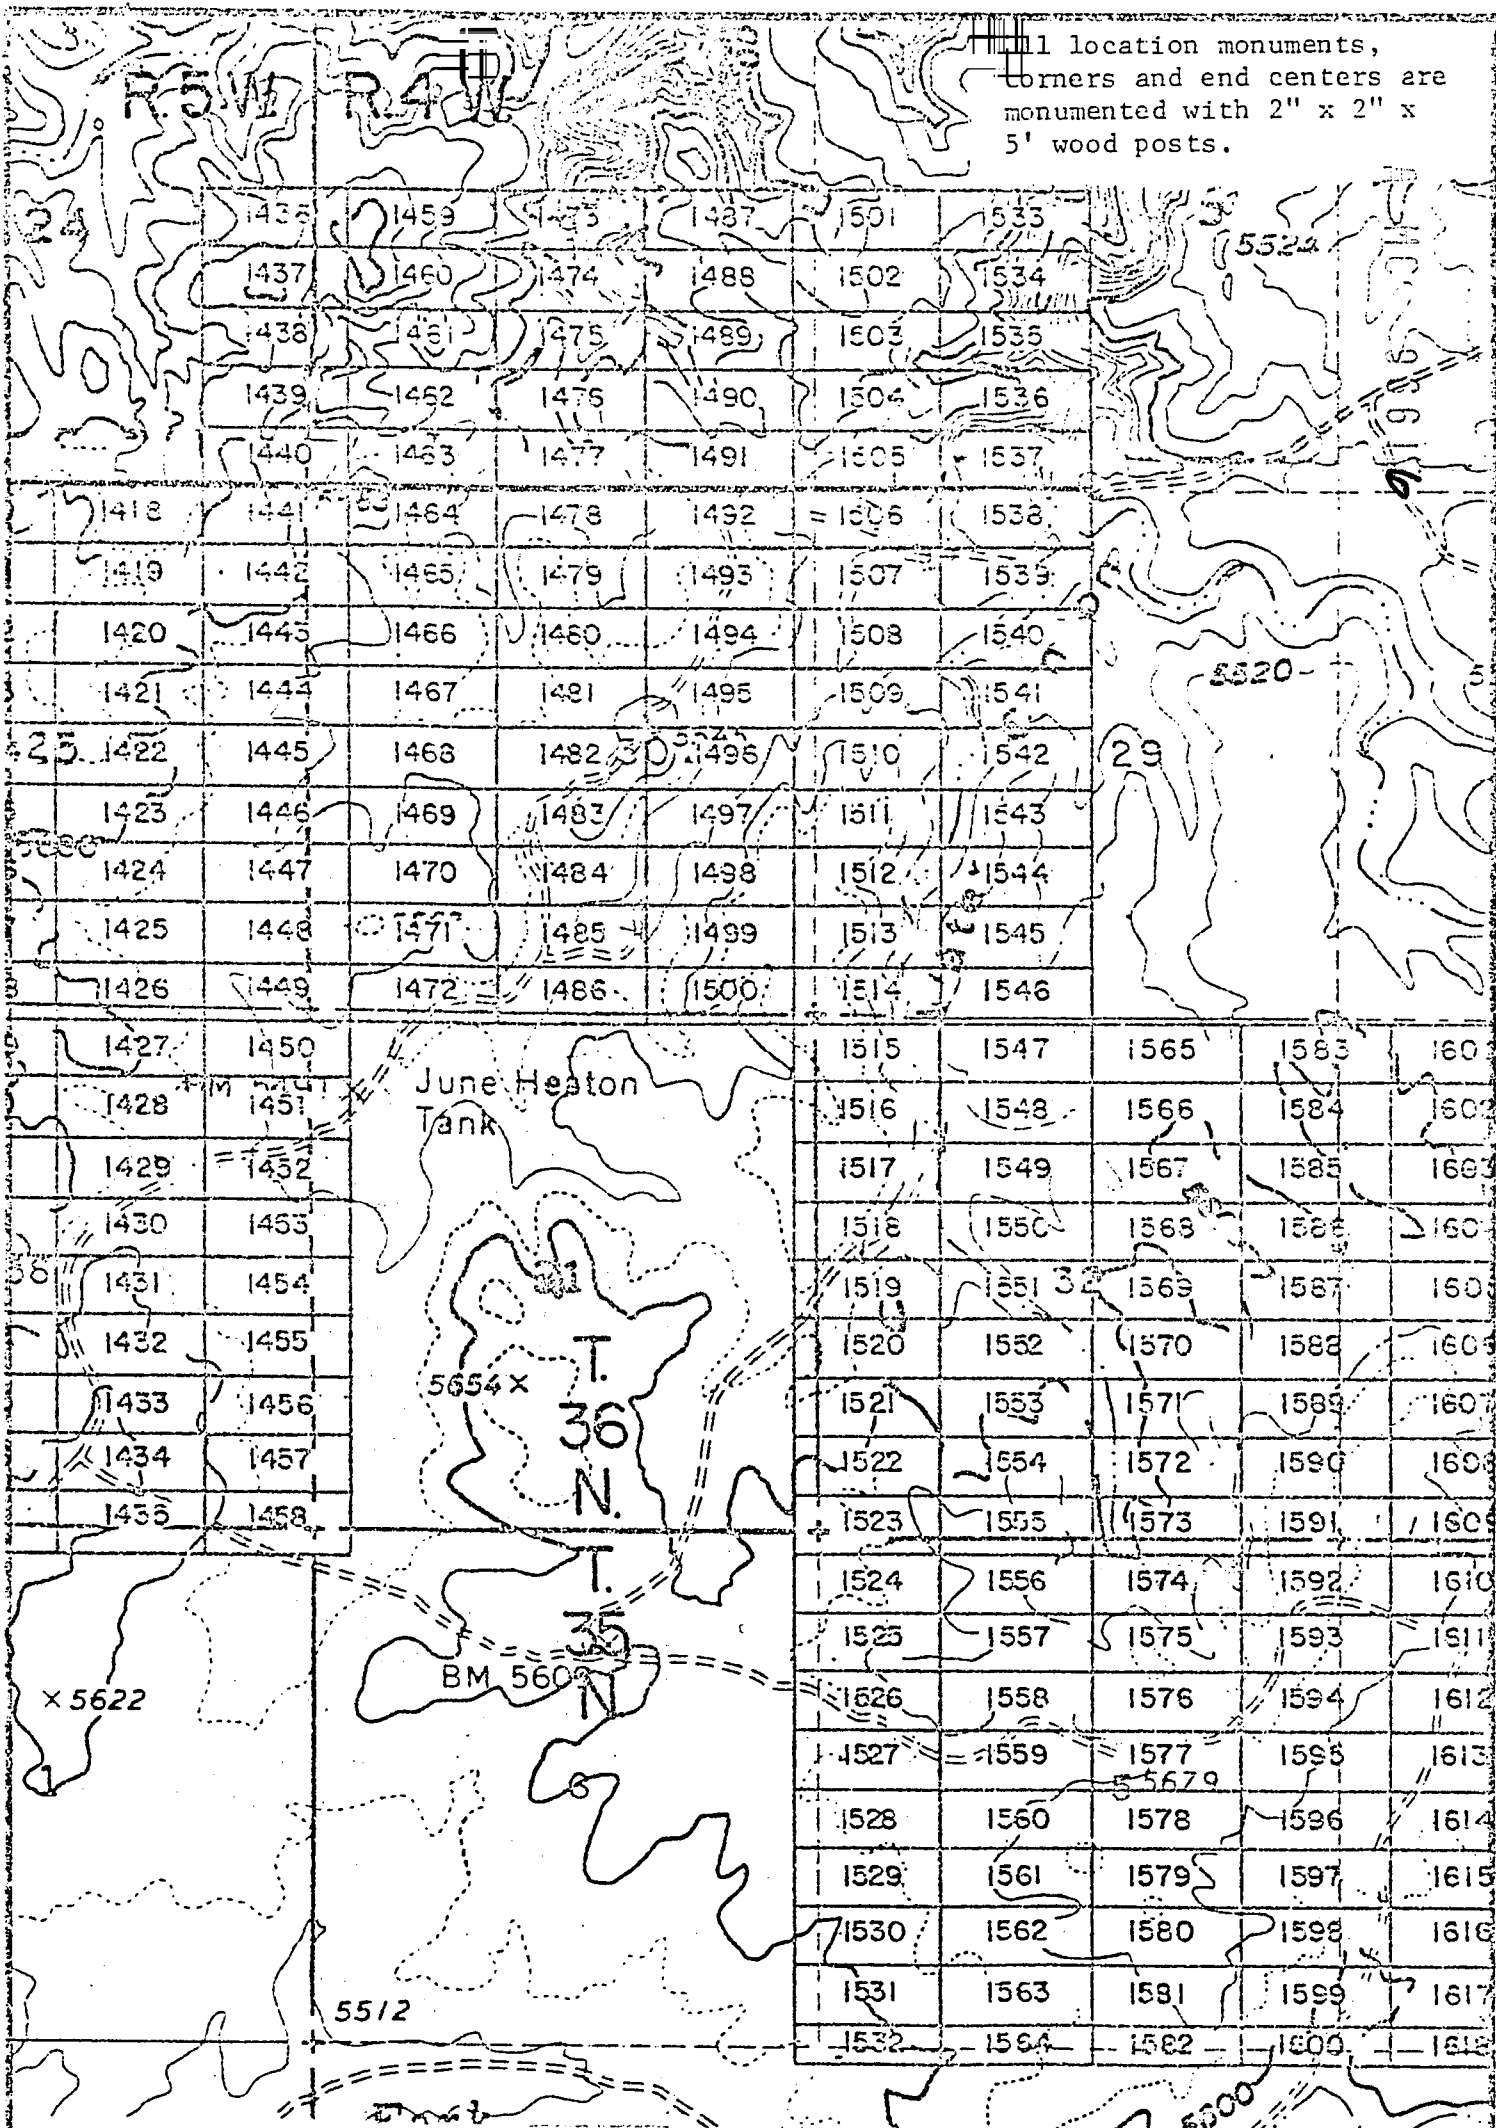 All location monuments,
corners and end centers are
monumented with 2" x 2" x
5' wood posts.
R.5W. R.4W
24
1436 1459 1473 1487 1501 1533
5524
1437 1460 1474 1488 1502 1534
1438 1461 1475 1489 1503 1535
1439 1462 1476 1490 1504 1536
1440 1463 1477 1491 1505 1537
1418 1441 1464 1478 1492 1506 1538
1419 1442 1465 1479 1493 1507 1539
1420 1443 1466 1480 1494 1508 1540
5520
1421 1444 1467 1481 1495 1509 1541
25 1422 1445 1468 1482 30 1496 1510 1542 29
1423 1446 1469 1483 1497 1511 1543
1424 1447 1470 1484 1498 1512 1544
1425 1448 1471 1485 1499 1513 1545
1426 1449 1472 1486 1500 1514 1546
1427 1450 1515 1547 1565 1583
June Heaton
Tank
1428 1451 1516 1548 1566 1584 1602
1429 1452 1517 1549 1567 1585 1603
1430 1453 1518 1550 1568 1586
1431 1454 31 1519 1551 32 1569 1587 1605
1432 1455 1520 1552 1570 1588 1606
T.
36
N.
5654
1433 1456 1521 1553 1571 1589 1607
1434 1457 1522 1554 1572 1590 1608
1435 1458 1523 1555 1573 1591 1609
T.
35
N
1524 1556 1574 1592 1610
1525 1557 1575 1593 1611
BM 560
x 5622
1526 1558 1576 1594 1612
1527 1559 1577 1595 1613
1 6 5 5679
1528 1560 1578 1596 1614
1529 1561 1579 1597 1615
1530 1562 1580 1598 1616
1531 1563 1581 1599 1617
5512
1532 1564 1582 1600 1618
5600